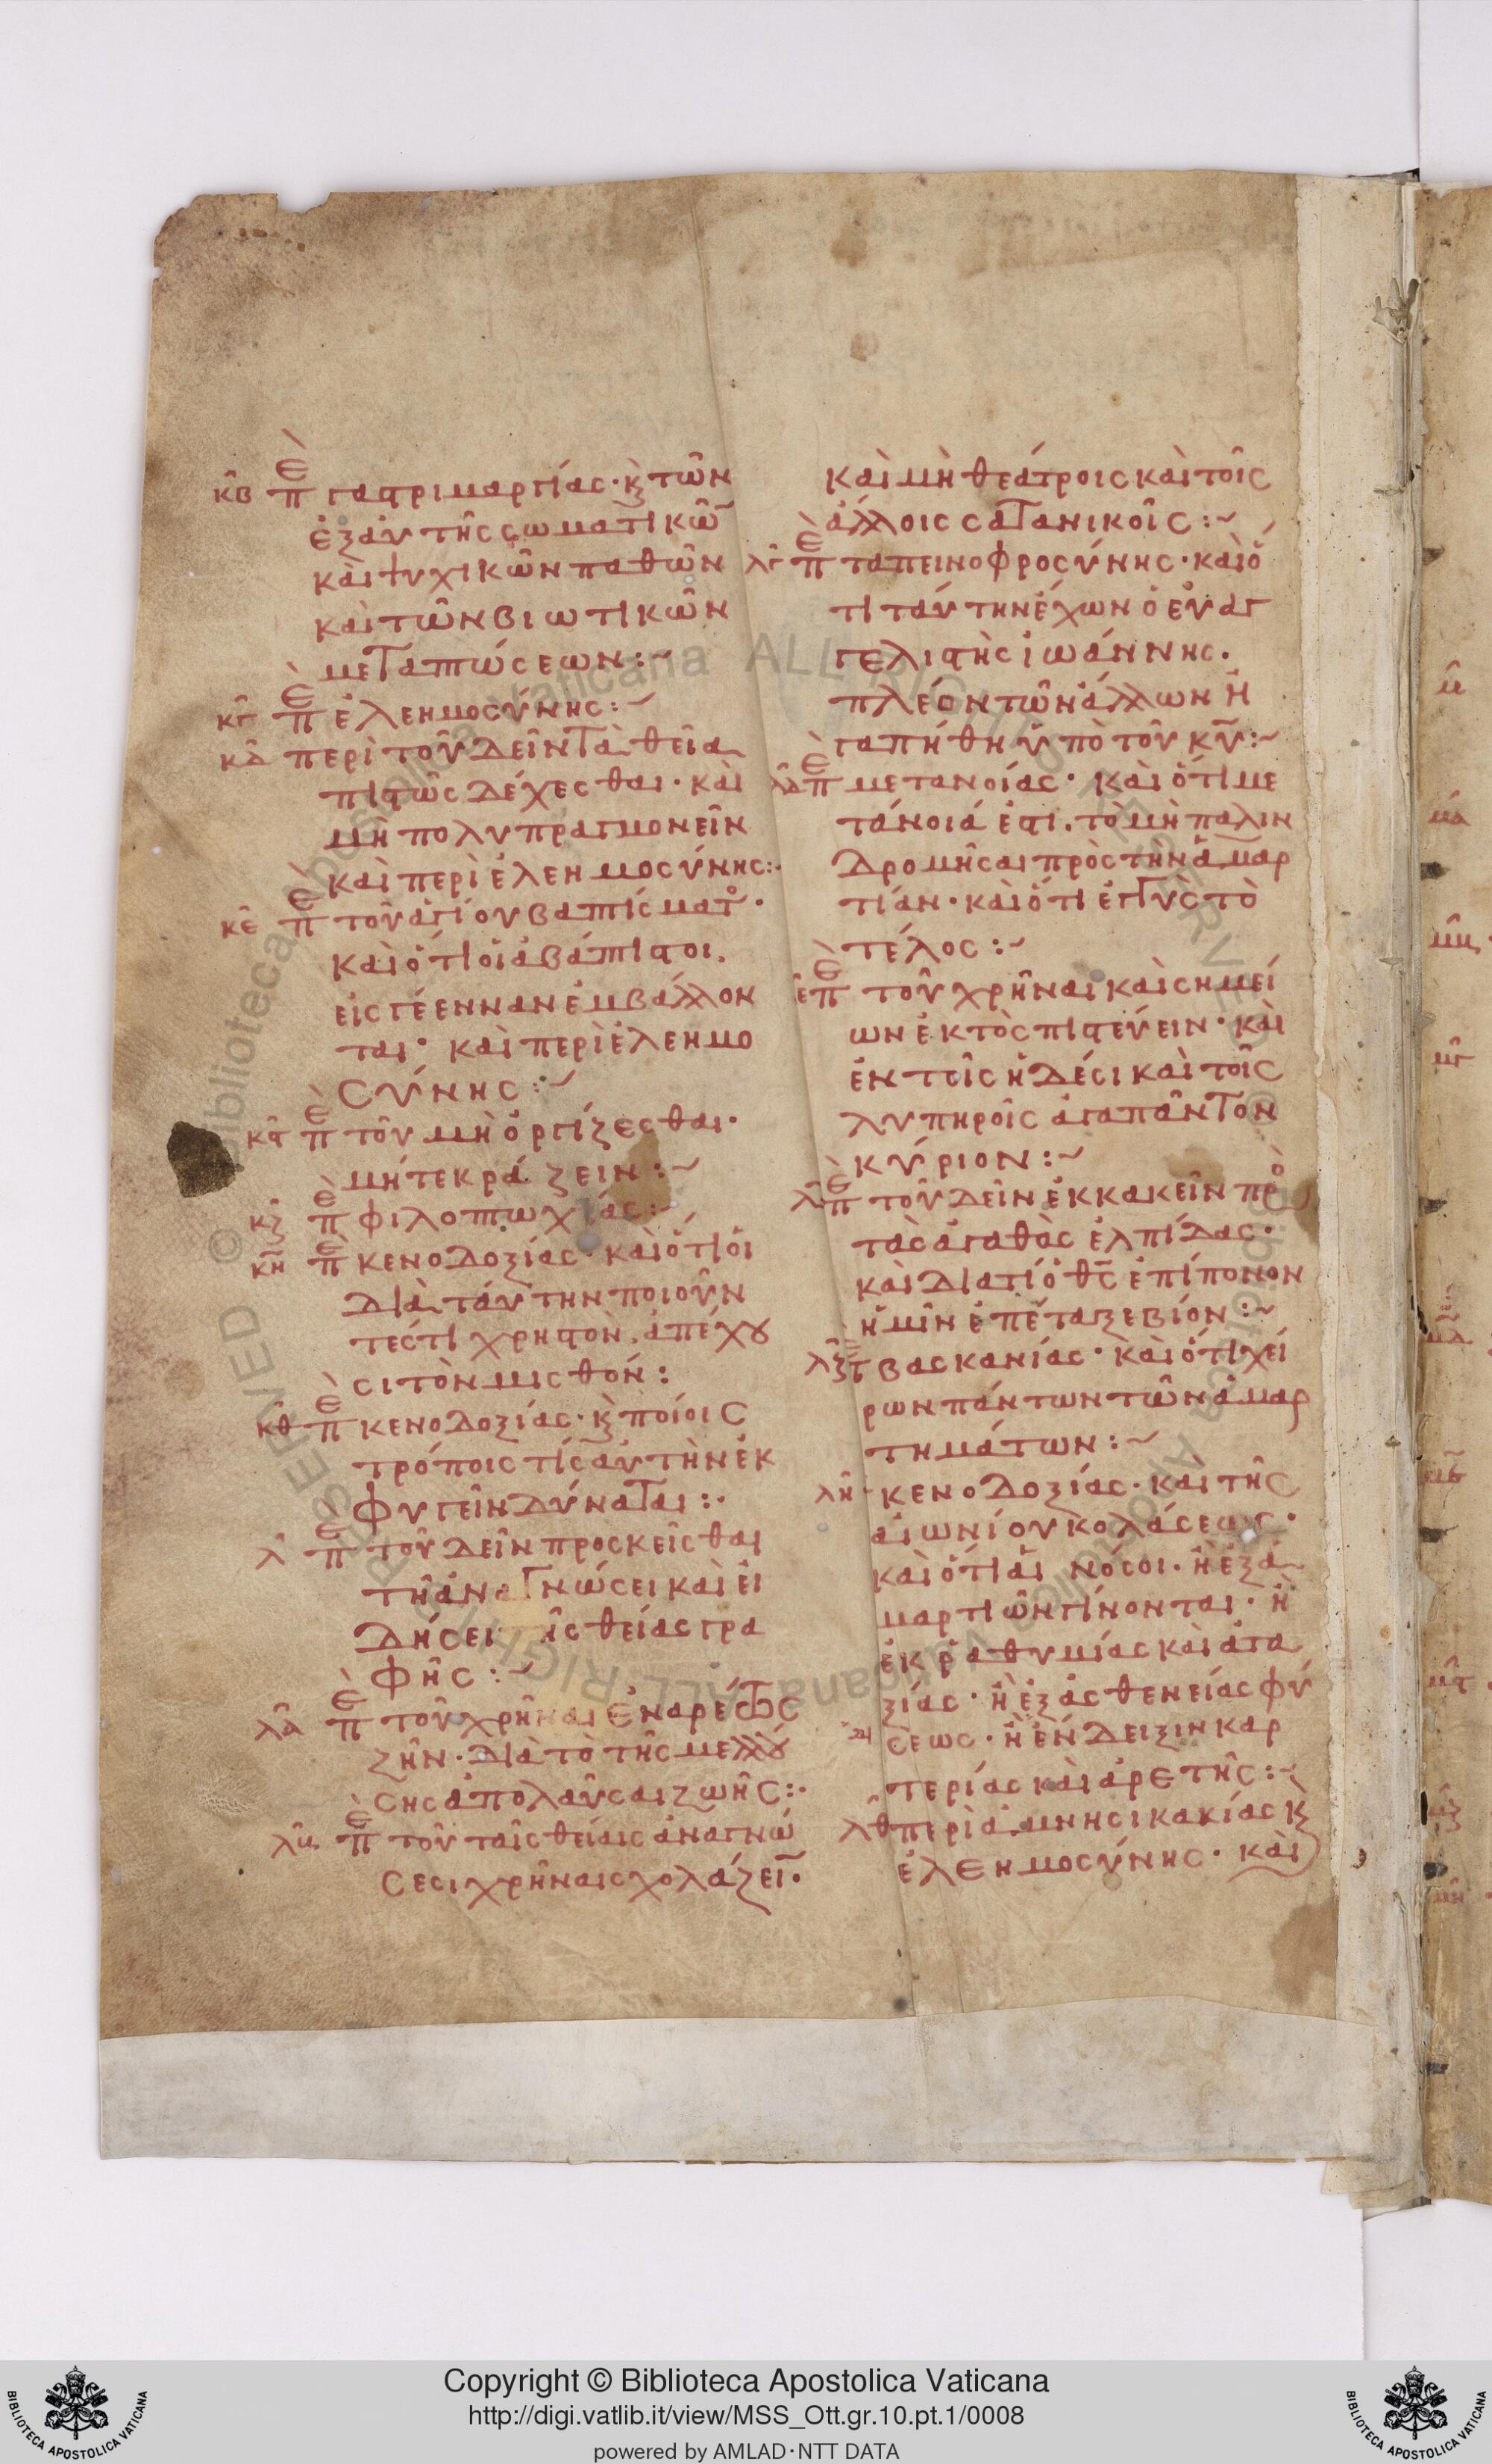 κβ πε γαστριμαργίας· κ τῶν
ἐξ αὐτῆς σωματικῶ
καὶ ψυχικῶν παθῶν
καὶ τῶν βιωτικῶν
μεταπτώσεων:~
κγ πε ἐλεημοσύνης:~
κδ περὶ τοῦ δεῖν τὰ θεῖα
πιστῶς δέχεσθαι· καὶ
μὴ πολυπραγμονεῖν
καὶ περὶ ἐλεημοσύνης:~
κε πε τοῦ ἁγίου βαπτίσματο·
καὶ ὅτι οἱ ἀβάπτιστοι.
εἰς γέενναν ἐμβάλλον
ται· καὶ περὶ ἐλεημο
σύνης:~
κϛ πε τοῦ μὴ ὀργίζεσθαι·
μήτε κράζειν:~
κζ πε φιλοπτωχίας:~
κη πε κενοδοξίας· καὶ ὅτι οἱ
διὰ ταύτην ποιοῦν
τές τι χρηστὸν. ἀπέχου
σι τὸν μισθόν:
κθ πε κενοδοξίας· κ ποίοις
τρόποις τίς αὐτὴν ἐκ
φυγεῖν δύναται:·
λ πε τοῦ δεῖν προσκεῖσθαι
τῆ ἀναγνώσει καὶ εἰ
δήσει τῆς θείας γρα
φῆς:~
λα πε τοῦ χρῆναι ἐναρέτως
ζῆν· διὰ τὸ τῆς μελλού
σης ἀπολαῦσαι ζωῆς:·
λβ πε τοῦ ταῖς θείαις ἀναγνώ
σεσι χρῆναι σχολάζει·
καὶ μὴ θεάτροις καὶ τοῖς
ἄλλοις σατανικοῖς:~
λγ πε ταπεινοφροσύνης· καὶ ὅ
τι ταύτην ἔχων ὁ εὐαγ
γελιστὴς ἰωάννης.
πλέον τῶν ἄλλων ἠ
γαπήθη ὑπὸ τοῦ κυ:~
λδ πε μετανοίας· καὶ ὅτι με
τάνοιά ἐστι. τὸ μὴ παλιν
δρομῆσαι πρὸς τὴν ἁμαρ
τίαν· καὶ ὅτι ἐγγὺς τὸ
τέλος:~
ε πε τοῦ χρῆναι καὶ σημεί
ων ἐκτὸς πιστεύειν· καὶ
ἐν τοῖς ἡδέσι καὶ τοῖς
λυπηροῖς ἀγαπᾶν τὸν
κύριον:~
λϛ πε τοῦ δεῖν ἐκκακεῖν πρὸ
τὰς ἀγαθὰς ἐλπίδας·
καὶ διατί ὁ θς ἐπίπονον
ἡμῖν ἐπέταξε βίον:~
λζ βασκανίας· καὶ ὅτι χεί
ρων πάντων τῶν ἁμαρ
τημάτων:~
λη κενοδοξίας· καὶ τῆς
αἰωνίου κολάσεως·
καὶ ὅτι αἱ νόσοι. ἢ ἐξ ἁ
μαρτιῶν γίνονται· ἢ
ἐκ ῥαθυμίας καὶ ἀτα
ξίας· ἢ ἐξ ἀσθενείας φύ
σεως· ἢ ἔνδειξιν καρ
τερίας καὶ ἀρετῆς:~
λθ περὶ ἀμνησικακίας κ
ἐλεημοσύνης· καὶ
Copyright © Biblioteca Apostolica Vaticana
http://digi.vatlib.it/view/MSS_Ott.gr.10.pt.1/0008
powered by AMLAD·NTT DATA
BIBLIOTECA APOSTOLICA VATICANA
BIBLIOTECA APOSTOLICA VATICANA